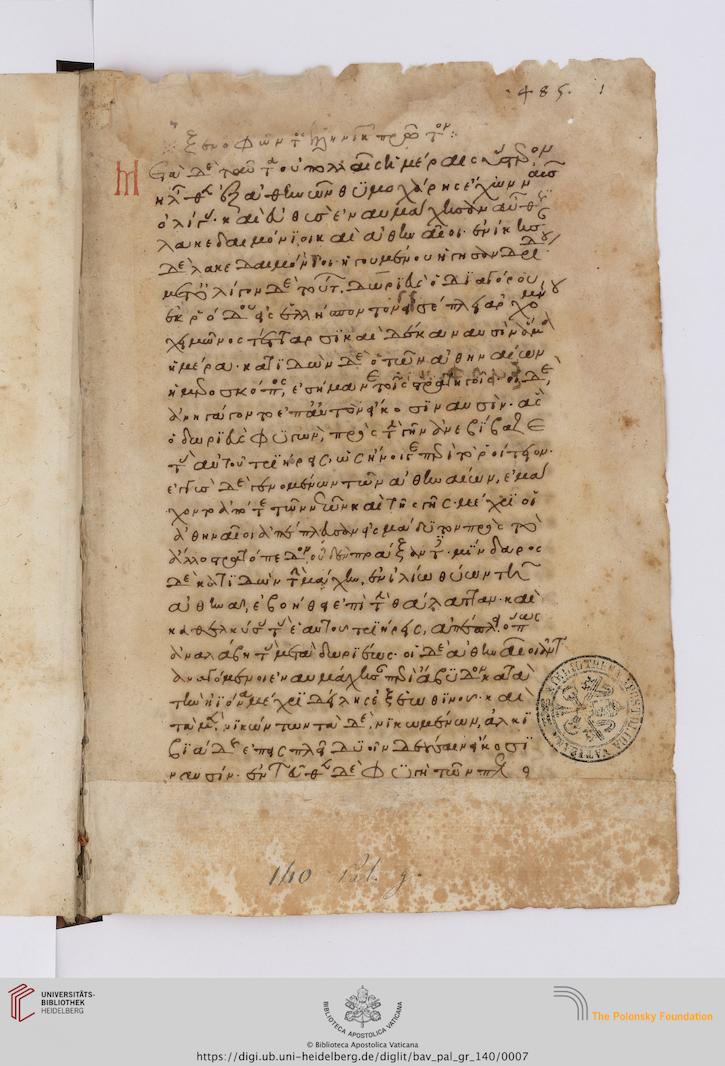 485. 1
ξενοφῶντος ἑλληνικῶν πρῶτον
Μετὰ δὲ ταῦτα οὐ πολλαῖς ἡμέραις ὕστερον
ἦλθεν ἐξ ἀθηνῶν θυμοχάρης ἔχων ναῦς
ὀλίγας· καὶ εὐθὺς ἐναυμάχησαν αὖθις
λακεδαιμόνιοι καὶ ἀθηναῖοι. ἐνίκησαν
δὲ λακεδαιμόνιοι ἡγουμένου ἡγησανδρίδου
μετ' ὀλίγον δὲ τούτων, δωριεὺς ὁ διαγόρου,
ἐκ ῥόδου εἰς ἑλλήσποντον εἰσέπλει ἀρχομένου
χειμῶνος τέτταρσι καὶ δέκα ναυσὶν ἅμα
ἡμέρα· κατιδὼν δὲ ὁ τῶν ἀθηναίων
ἡμεροσκόπος, ἐσήμανε τοῖς στρατηγοῖς· οἱ δὲ,
ἀνηγάγοντο ἐπ' αὐτὸν εἴκοσι ναυσὶν· ἃς
ὁ δωριεὺς φυγὼν, πρὸς τὴν γῆν ἀνεβίβαζε
τὰς αὑτοῦ τριήρεις, ὡς ἤνοιγε περὶ τὸ ῥοίτειον·
ἐγγὺς δὲ γενομένων τῶν ἀθηναίων, ἐμά
χοντο ἀπό τε τῶν νεῶν καὶ τῆς γῆς· μέχρι οἱ
ἀθηναῖοι ἀπέπλευσαν εἰς μάδυτον πρὸς τὸ
ἄλλο στρατόπεδον οὐδὲν πράξαντες· μίνδαρος
δὲ κατιδὼν τὴν μάχην, ἐν ἰλίω θύων τῆ
ἀθηνᾶ, ἐβοήθει ἐπὶ τὴν θάλατταν· καὶ
καθελκύσας τὰς ἑαυτοῦ τριήρεις, ἀπέπλει ὅπως
ἀναλάβη τὰς μετὰ δωριέως· οἱ δὲ ἀθηναῖοι ἀντ
αναγόμενοι ἐναυμάχησαν περὶ ἄβυδον κατὰ
τὴν ἠϊόνα μέχρι δείλης ἐξ ἑωθινοῦ· καὶ
τὰ μὲν, νικώντων τὰ δὲ, νικωμένων, ἀλκι
βιάδης ἐπεισπλεῖ δυοῖν δεούσαιν εἴκοσι
ναυσίν· ἐντεῦθεν δὲ φυγὴ τῶν πελο
140 Pal. g.
BIBLIOTHECA APOSTOLICA VATICANA
UNIVERSITÄTS-
BIBLIOTHEK
HEIDELBERG
BIBLIOTECA APOSTOLICA VATICANA
The Polonsky Foundation
© Biblioteca Apostolica Vaticana
https://digi.ub.uni-heidelberg.de/diglit/bav_pal_gr_140/0007